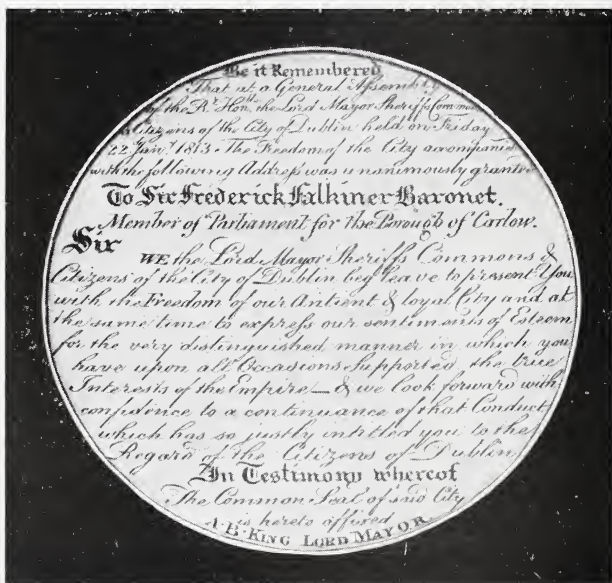 Be it Remembered
That at a General Assembly
of the Rt. Honble. the Lord Mayor Sheriffs Commons
& Citizens of the City of Dublin held on Friday
22 Jany. 1813. The Freedom of the City accompanied
with the following Address was unanimously granted
To Sir Frederick Falkiner Baronet.
Member of Parliament for the Borough of Carlow.
Sir
WE the Lord Mayor Sheriffs Commons &
Citizens of the City of Dublin beg leave to present You
with the Freedom of our Antient & loyal City and at
the same time to express our sentiments of Esteem
for the very distinguished manner in which you
have upon all Occasions Supported the true
Interests of the Empire — & we look forward with
confidence to a continuance of that Conduct
which has so justly intitled you to the
Regard of the Citizens of Dublin
In Testimony whereof
The Common Seal of said City
is hereto affixed
A·B·KING LORD MAYOR